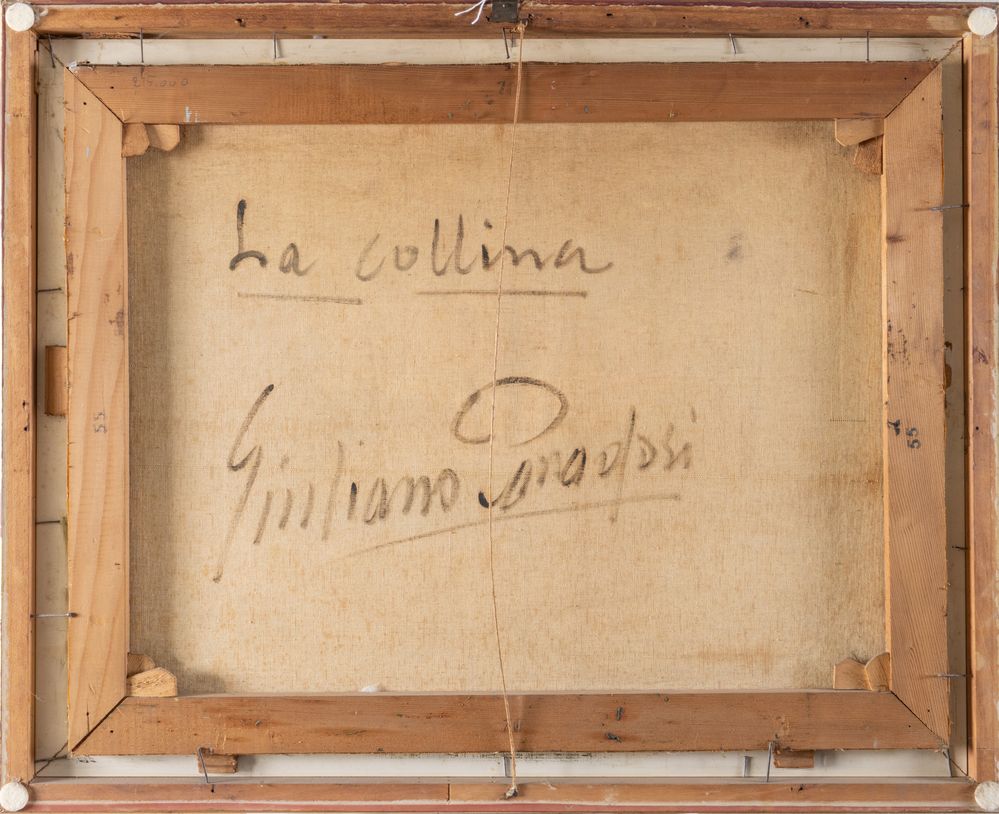 La collina
Giuliano Paradisi
55
55